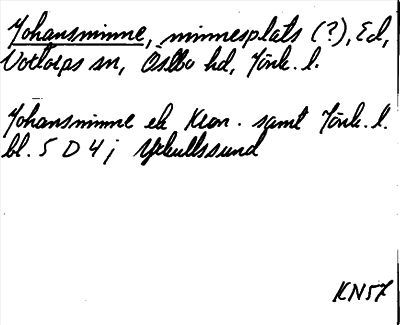 Johansminne, minnesplats (?), Ed,
Voxtorps sn, Östbo hd, Jönk. l.
Johansminne ek Kron. samt Jönk. l.
bl. 5 D 4 j
KN57